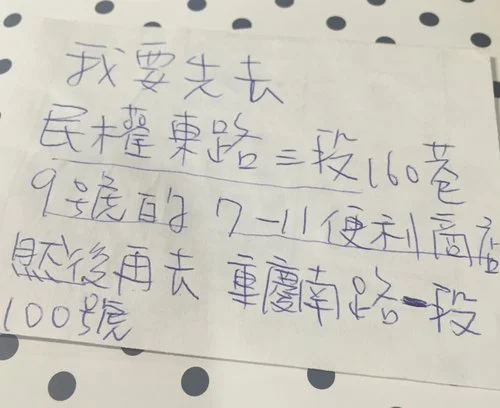 我要先去
民權東路三段160巷
9號的 7-11便利商店
然後再去 重慶南路一段
100號